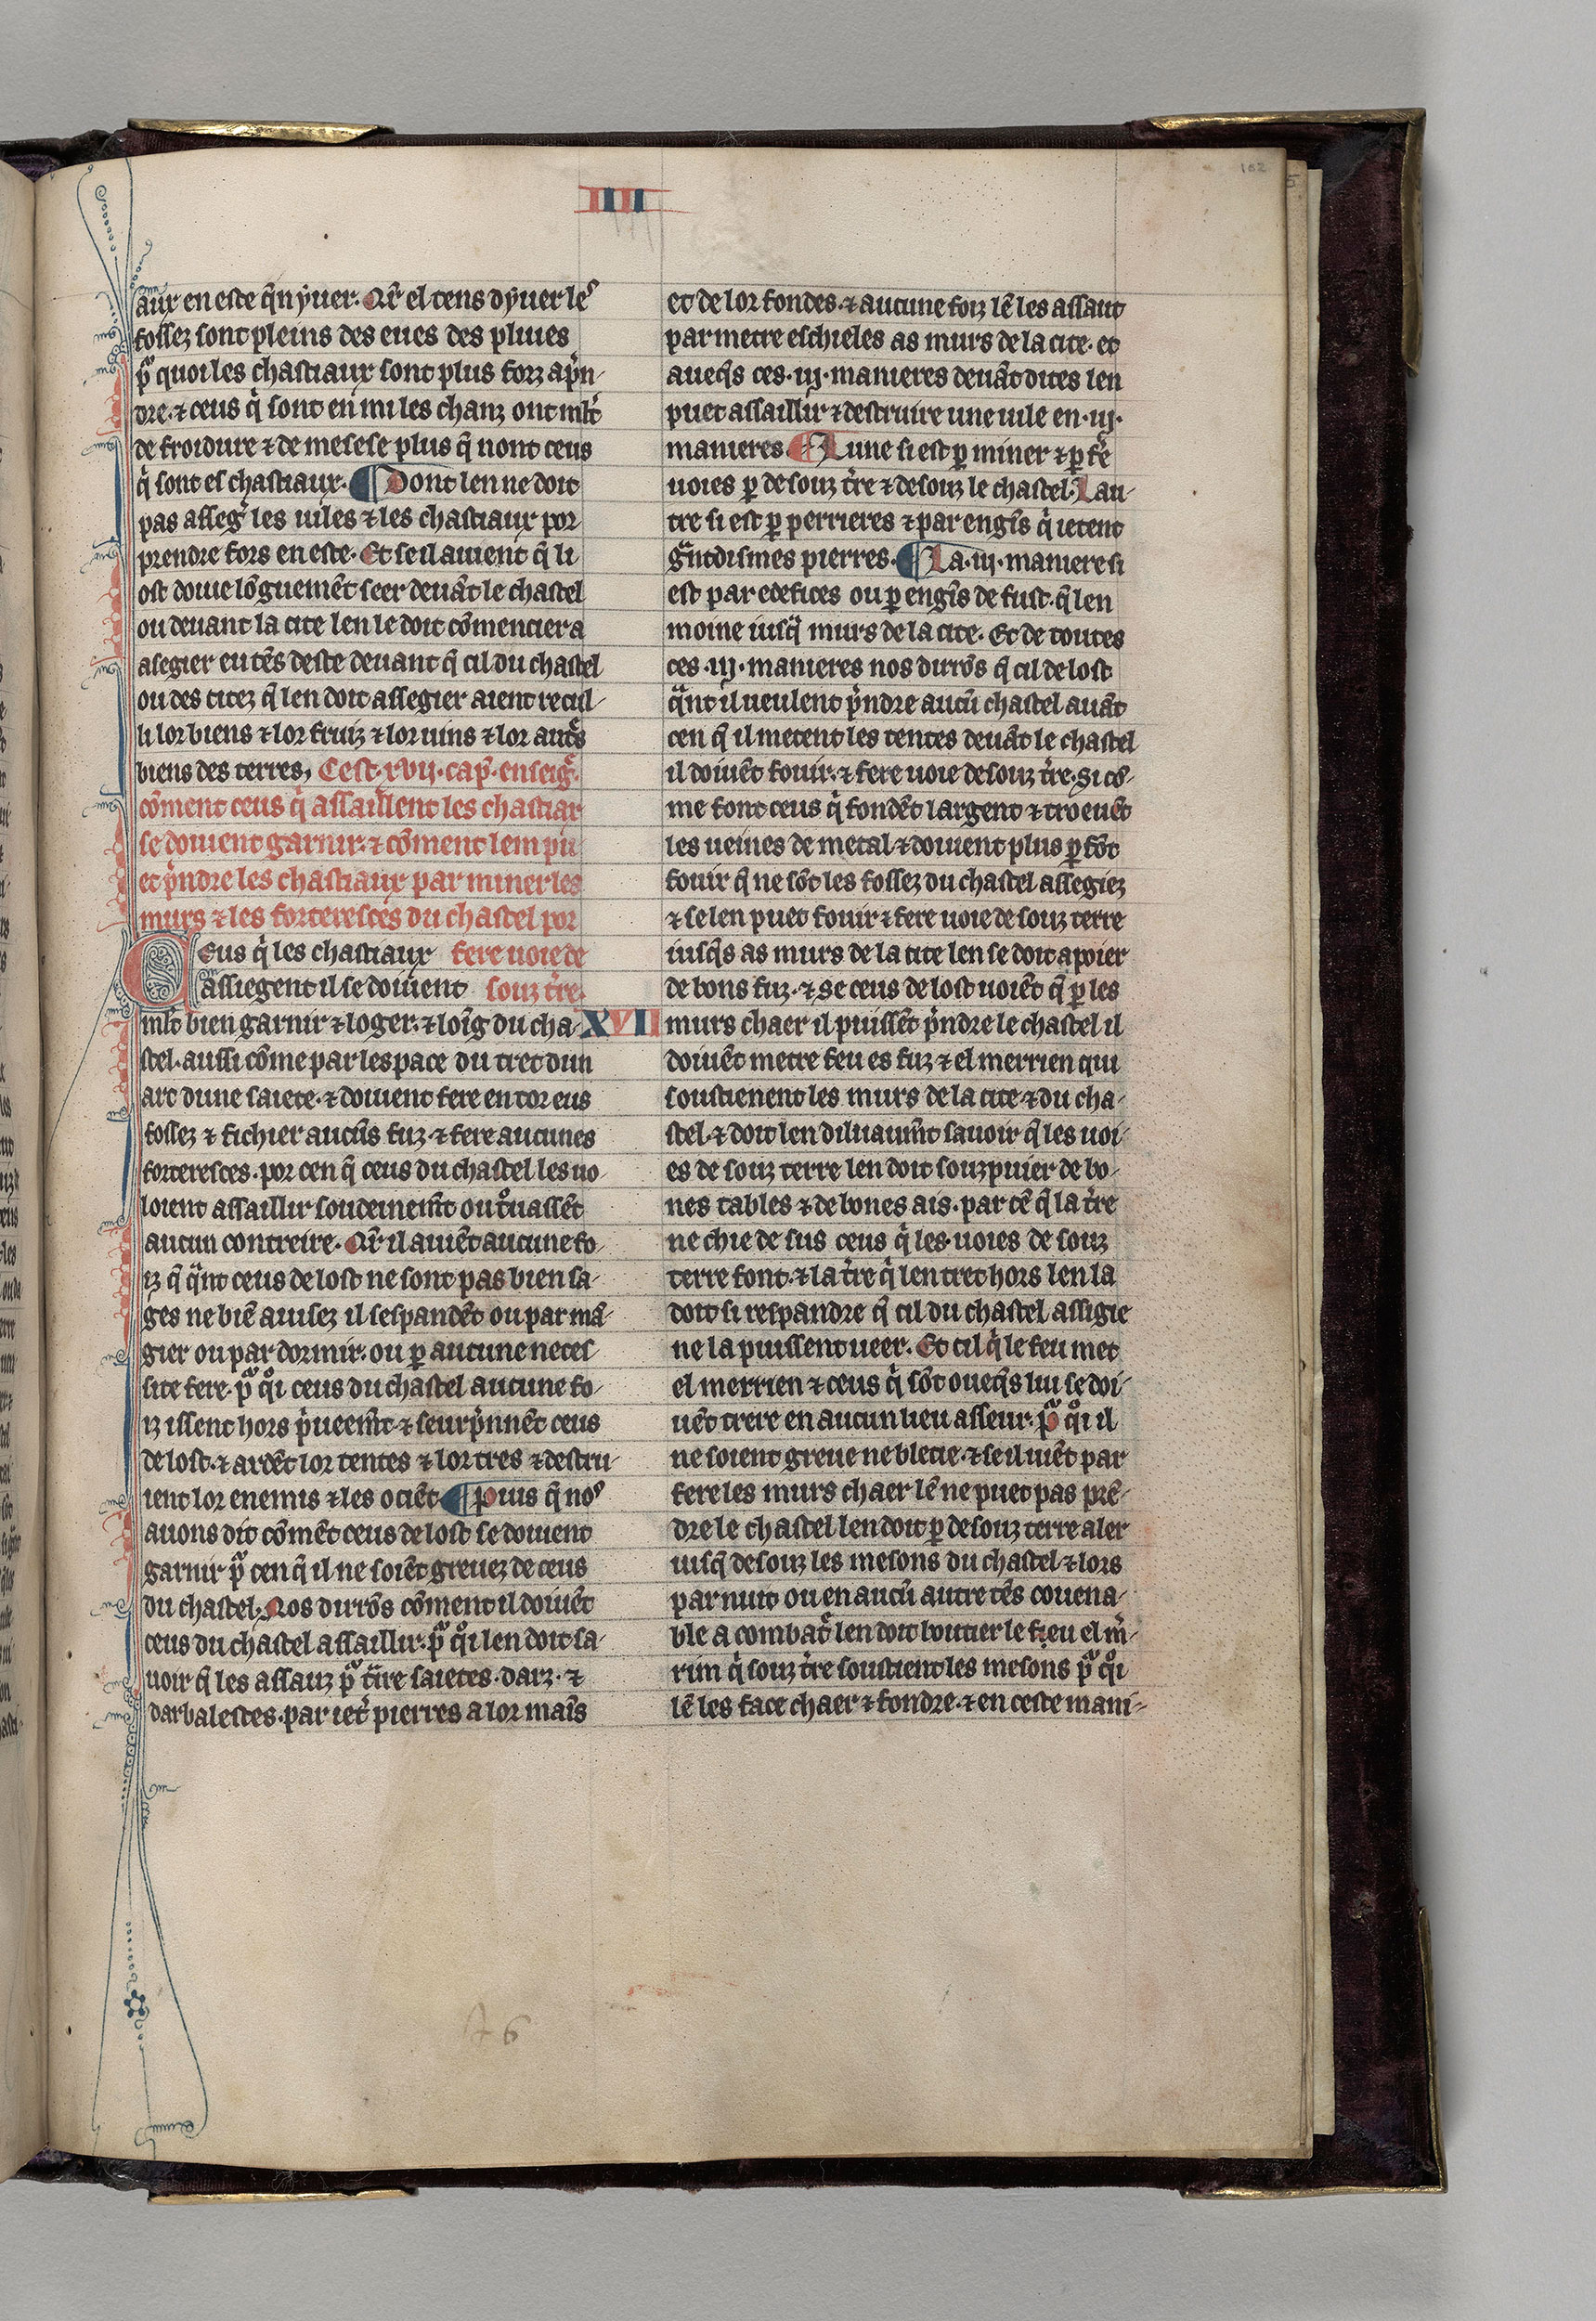 102
IIII
aux en este q̃n yuer. Qr̃ el tens dyuer les
fossez sont pleins des eues des pluies
pᵃ quoi les chastiaux sont plus forz apñ-
dre. ⁊ ceus q̇ sont en mi les chanz ont ml̃t
de froidure ⁊ de mesese plus q̃ nont ceus
q̇ sont es chastiaux. ¶ Dont len ne doit
pas assegẽ les uiles ⁊ les chastiaux por
prendre fors en este. Et se il auient q̃ li
ost doiue lõguemẽt seer deuãt le chastel
ou deuant la cite len le doit cõmencier a
asegier eu tẽs deste deuant q̃ cil du chastel
ou des citez q̃ len doit assegier aient recuil-
li lor biens ⁊ lor fruiz ⁊ lor uins ⁊ lor autr̃s
biens des terres, Cest .xvij. cap̃. enseigᵃ.
cõment ceus q̇ assaillent les chastiax
se doiuent garnir. ⁊ cõment lem pu
et p̃ndre les chastiaux par miner les
murs ⁊ les forteresces du chastel por
Ceus q̇ les chastiaux fere uoie de
assiegent il se doiuent souz tr̃e.
ml̃t bien garnir ⁊ loger. ⁊ loĩg du cha- XVII
stel. aussi cõme par lespace du tret dun
arc dune saiete. ⁊ doiuent fere entor eus
fossez ⁊ fichier aucũs fuz ⁊ fere aucunes
forteresces. por cen q̃ ceus du chastel les uo-
loient assaillir soudeinemt̃ ou tᵒuassẽt
aucun contreire. Qr̃ il auiẽt aucune fo-
iz q̃ qᵃnt ceus de lost ne sont pas bien sa-
ges ne biẽ auisez il sespandẽt ou par mã-
gier ou par dormir. ou ꝑ aucune neces
site fere. pᵃ qᵒi ceus du chastel aucune fo-
iz issent hors ṗueemt̃ ⁊ seurp̃nnẽt ceus
de lost. ⁊ ardẽt lor tentes ⁊ lor tres ⁊ destru-
ient lor enemis ⁊ les ociẽt ¶ Puis q̃ nos
auons dit cõmẽt ceus de lost se doiuent
garnir pᵃ cen q̃ il ne soiẽt greuez de ceus
du chastel. Nos dirõs cõment il doiuẽt
ceus du chastel assaillir. pᵃ qᵒi len doit sa-
uoir q̃ les assauz pᵃ tr̃re saietes. darz. ⁊
darbalestes. par iet̃ pierres a lor maĩs
et de lor fondes. ⁊ aucune foiz lẽ les assaut
par metre eschieles as murs de la cite. et
aueq̃s ces .iij. manieres deuãt dites len
puet assaillir ⁊ destruire une uile en .iij.
manieres. ¶ Lune si est ꝑ miner ⁊ ꝑ fẽ
uoies ꝑ desouz tr̃e ⁊ desouz le chastel. Lau-
tre si est ꝑ perrieres ⁊ par engĩs q̇ ietent
gᵃntdismes pierres. ¶ La .iij. maniere si
est par edefices ou ꝑ engĩs de fust. q̃ len
moine iusq̃ murs de la cite. Et de toutes
ces .iij. manieres nos dirrõs q̃ cil de lost
qᵃnt il ueulent p̃ndre aucũ chastel auãt
cen q̃ il metent les tentes deuãt le chastel
il doiuẽt fouir. ⁊ fere uoie desouz tr̃e. Si cõ-
me font ceus q̇ fondẽt largent ⁊ troeuẽt
les ueines de metal. ⁊ doiuent plus ꝑfõt
fouir q̃ ne sõt les fossez du chastel assegiez
⁊ se len puet fouir ⁊ fere uoie desouz terre
iusq̃s as murs de la cite len se doit apoier
de bons fuz. ⁊ se ceus de lost uoiẽt q̃ ꝑ les
murs chaer il puissẽt p̃ndre le chastel il
doiuẽt metre feu es fuz ⁊ el merrien qui
soustienent les murs de la cite ⁊ du cha-
stel. ⁊ doit len diluaumt̃ sauoir q̃ les uoi-
es desouz terre len doit souzpuier de bo-
nes tables ⁊ de bones ais. par cẽ q̃ la tr̃re
ne chie de sus ceus q̇ les uoies de souz
terre font. ⁊ la tr̃re q̇ len tret hors len la
doit si respandre q̃ cil du chastel assigie
ne la puissent ueer. Et cil q̇ le feu met
el merrien ⁊ ceus q̇ sõt oueq̃s lui se doi-
uẽt trere en aucun lieu asseur. pᵃ qᵒi il
ne soient greue ne blecie. ⁊ se il uiẽt par
fere les murs chaer lẽ ne puet pas prẽ-
dre le chastel len doit ꝑ desouz terre aler
iusq̃ desouz les mesons du chastel ⁊ lors
par nuit ou en aucũ autre tẽs couena-
ble a combat̃ len doit boutier le fieu el m̃-
rim q̇ souz tr̃e soustient les mesons pᵃ qᵒi
lẽ les face chaer ⁊ fondre. ⁊ en ceste mani-